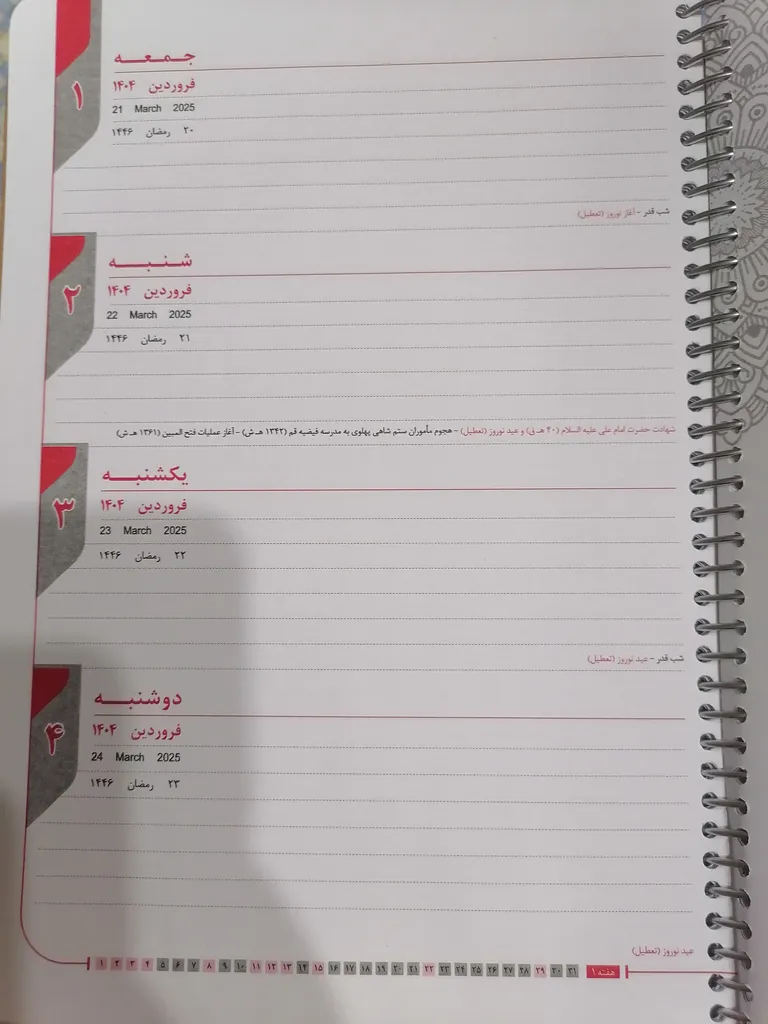 ۱
جمعه
فروردین ۱۴۰۴
21 March 2025
۲۰ رمضان ۱۴۴۶
شب قدر - آغاز نوروز (تعطیل)
۲
شنبه
فروردین ۱۴۰۴
22 March 2025
۲۱ رمضان ۱۴۴۶
شهادت حضرت امام علی علیه السلام (۴۰ هـ ق) و عید نوروز (تعطیل) - هجوم مأموران ستم شاهی پهلوی به مدرسه فیضیه قم (۱۳۴۲ هـ ش) - آغاز عملیات فتح المبین (۱۳۶۱ هـ ش)
۳
یکشنبه
فروردین ۱۴۰۴
23 March 2025
۲۲ رمضان ۱۴۴۶
شب قدر - عید نوروز (تعطیل)
۴
دوشنبه
فروردین ۱۴۰۴
24 March 2025
۲۳ رمضان ۱۴۴۶
عید نوروز (تعطیل)
۱ ۲ ۳ ۴ ۵ ۶ ۷ ۸ ۹ ۱۰ ۱۱ ۱۲ ۱۳ ۱۴ ۱۵ ۱۶ ۱۷ ۱۸ ۱۹ ۲۰ ۲۱ ۲۲ ۲۳ ۲۴ ۲۵ ۲۶ ۲۷ ۲۸ ۲۹ ۳۰ ۳۱ هفته ۱